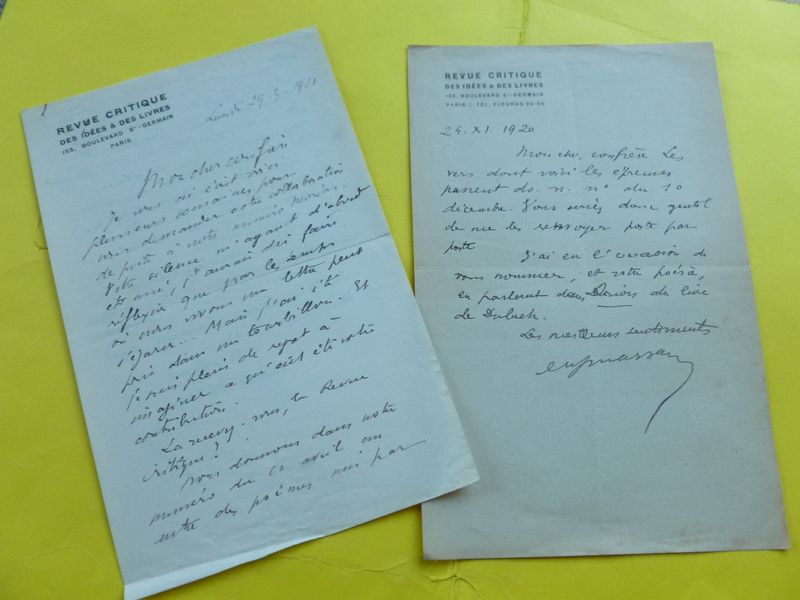 REVUE CRITIQUE
DES IDÉES & DES LIVRES
155, BOULEVARD St-GERMAIN
PARIS
Lundi 29-3-1920
Mon cher confrère
Je vous ai écrit voici
plusieurs semaines pour
vous demander votre collaboration
de poète à notre numéro Moréas.
Votre silence m'ayant d'abord
étonné, j'aurais dû faire
réflexion que par les temps
où nous vivons ma lettre peut
s'égarer... Mais j'ai été
pris dans un tourbillon. Et
je suis plein de regret à
imaginer ce qu'eût été votre
contribution.
La recevez-vous, la Revue
critique ?
Nous donnons dans notre
numéro du 10 avril un
entre des poèmes mis par
REVUE CRITIQUE
DES IDÉES & DES LIVRES
155, BOULEVARD St-GERMAIN
PARIS : TÉL. FLEURUS 26-26
24. XI. 1920
Mon cher confrère Les
vers dont voici les épreuves
passent ds. n. n° du 10
décembre. Vous seriez donc gentil
de me les renvoyer poste par
poste
J'ai eu l'occasion de
vous nommer, et votre poésie,
en parlant dans du livre
de Dubech.
Les meilleurs sentiments